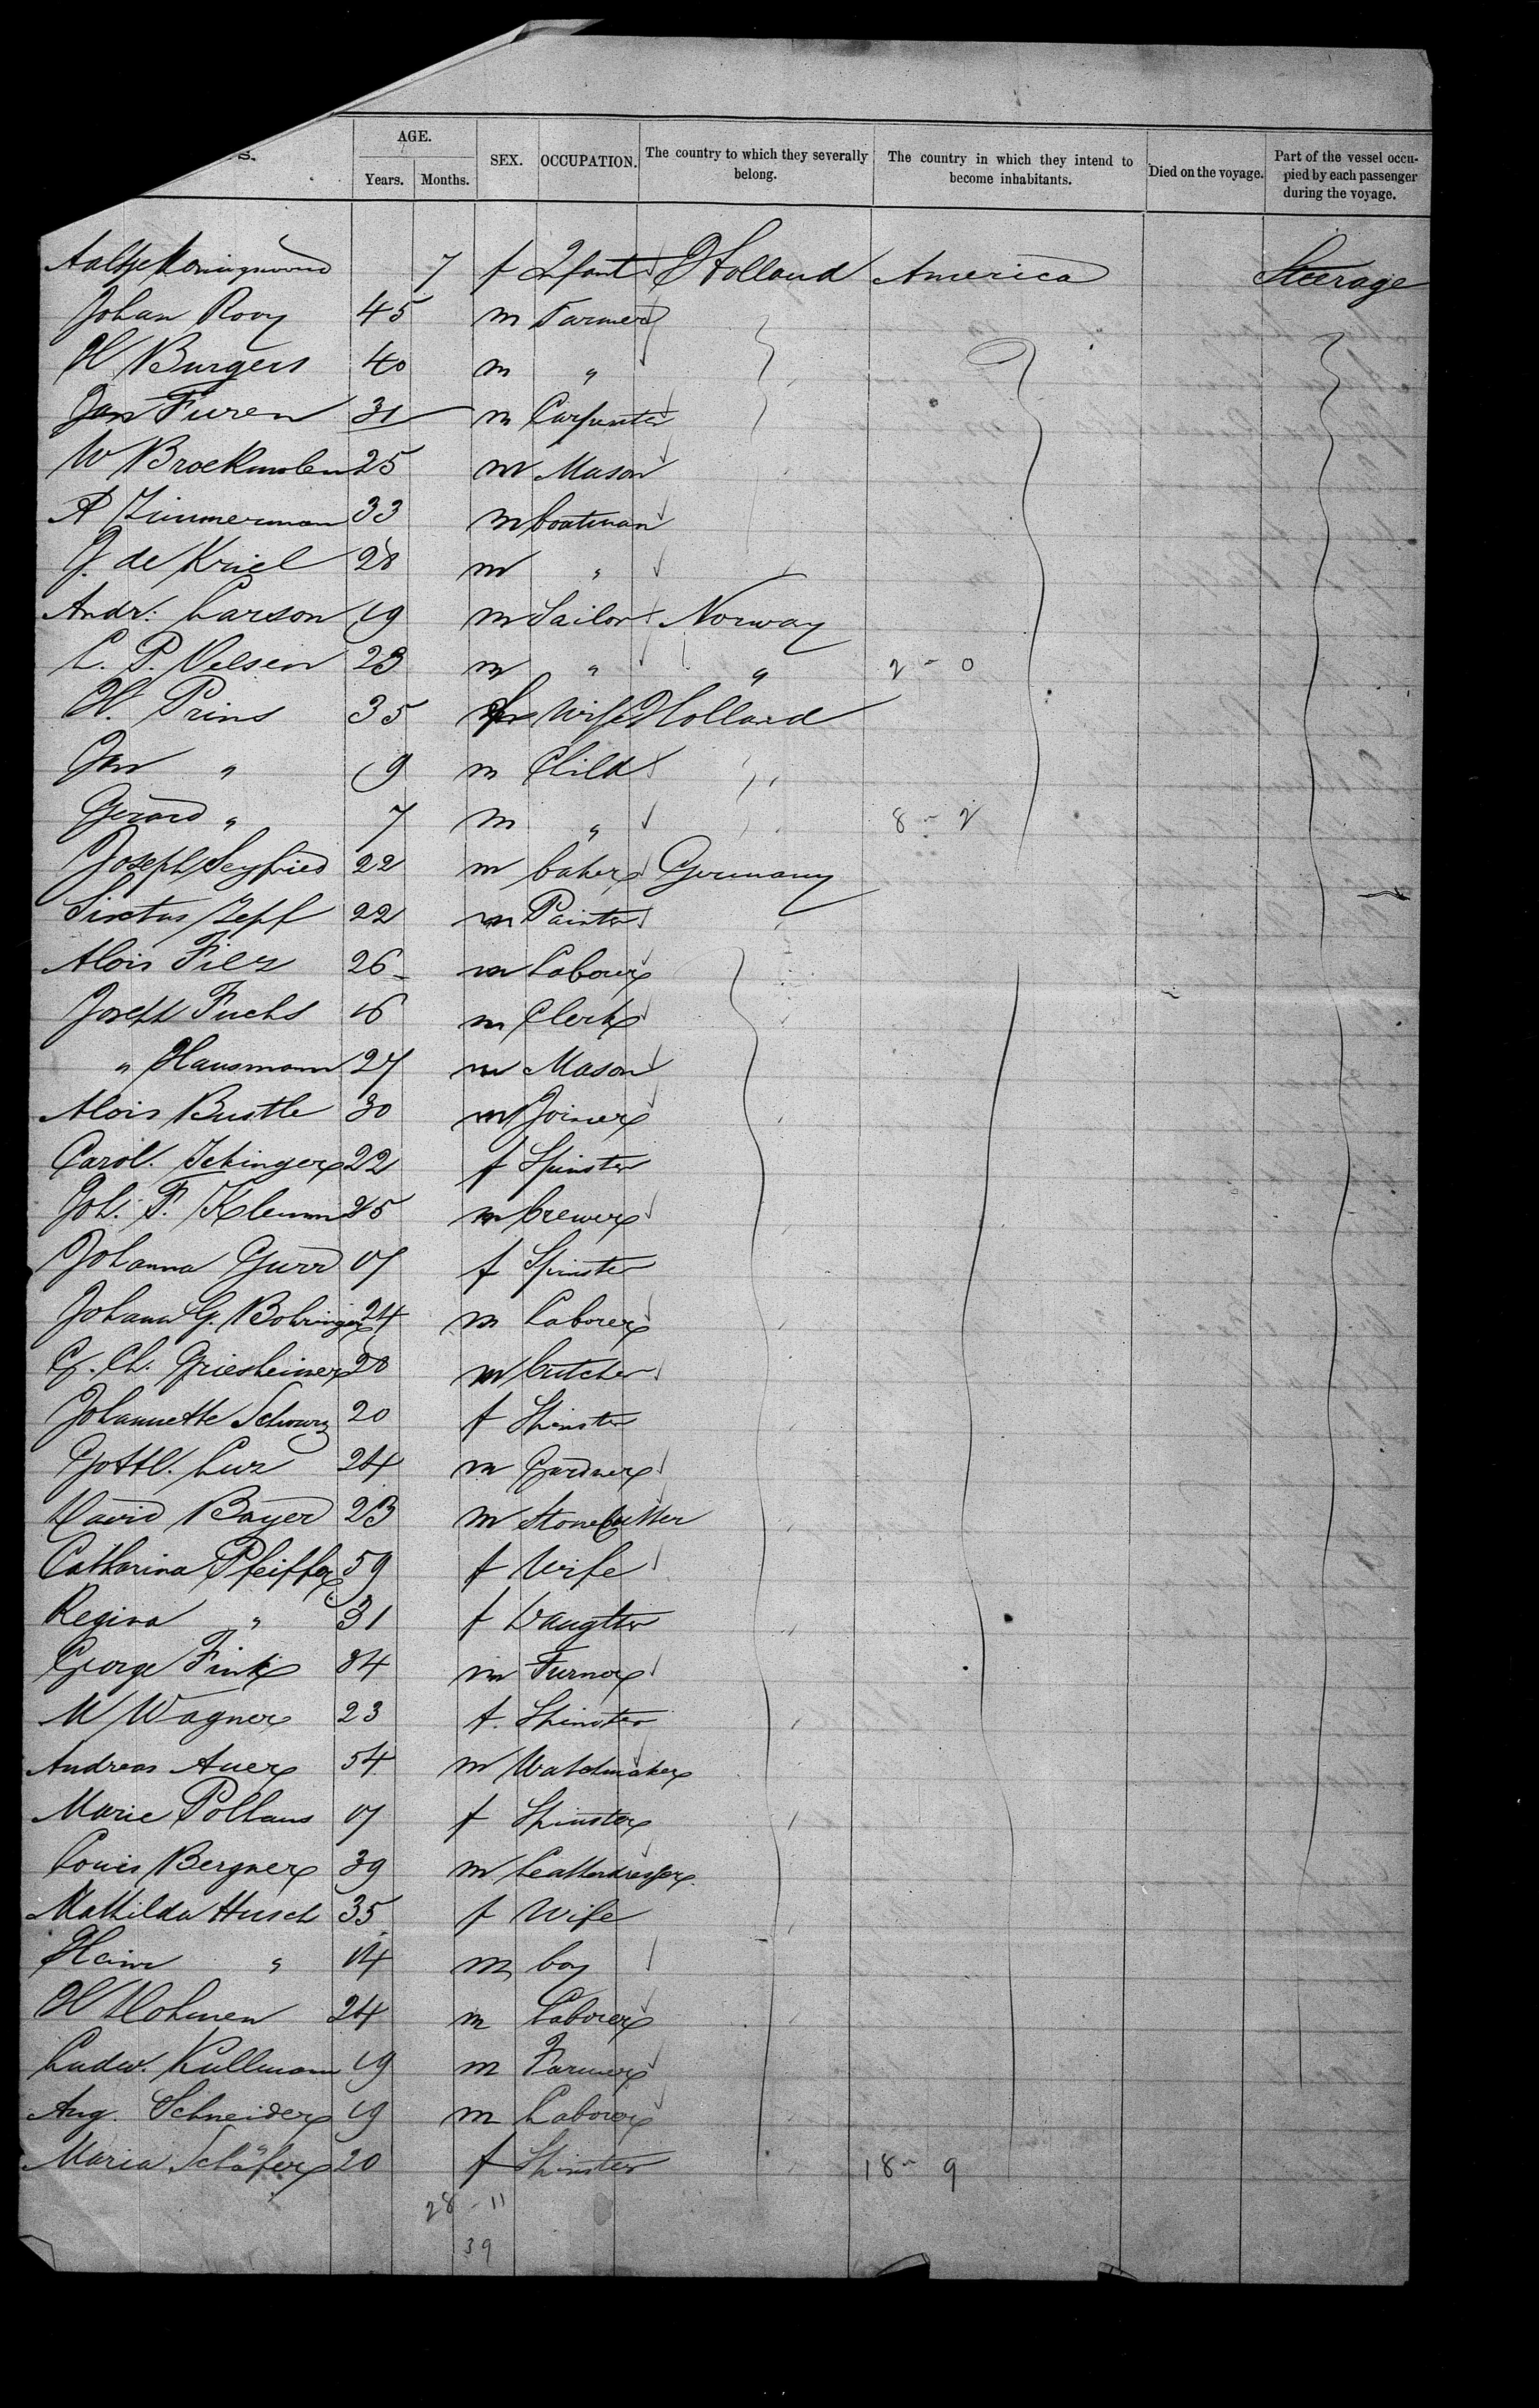 S.
AGE.
Years. Months.
SEX.
OCCUPATION.
The country to which they severally belong.
The country in which they intend to become inhabitants.
Died on the voyage.
Part of the vessel occupied by each passenger during the voyage.
Aaltje 7 f Infant Holland America Steerage
Johan Rooy 45 m Farmer
H Burgers 40 m "
Jan Furen 31 m Carpenter
W Broekmolen 25 m Mason
A Zimmerman 33 m boatman
J. de Kriel 28 m "
Andr. Larson 19 m Sailor Norway
C. P. Nelsen 23 m " " 2 - 0
H. Prins 35 f Wife Holland
Jan " 9 m Child "
Gerard " 7 m " 8 - 2
Joseph Seyfried 22 m baker Germany
Sixtus Zepf 22 m Painter
Alois Filz 26 m Labour
Joseph Fuchs 16 m Clerk
" Hausmann 27 m Mason
Alois Bustle 30 m Joiner
Carol. 22 f Spinster
Joh. F. Klemm 25 m brewer
Johanna Gurr 17 f Spinster
Johann G. Bohringer 24 m Laborer
G. Ch. Griesheimer 28 m butcher
Johannette Schwarz 20 f Spinster
Gottl. Luz 24 m Gardner
David Bayer 23 m Stonecutter
Catharina Pfeiffer 59 f Wife
Regina " 31 f Daugtter
George Fink 34 m Turner
M Wagner 23 f. Spinster
Andreas Auer 54 m Watchmaker
Marie Pollaus 17 f Spinster
Louis Bergner 39 m Leatherdresser
Mathilda Husch 35 f Wife
Heinr " 14 m boy
H Mohmen 24 m Laborer
Ludw. Kullmann 19 m Farmer
Aug. Schneider 19 m Laborer
Maria Schäfer 20 f Spinster 18 - 9
28 - 11
39